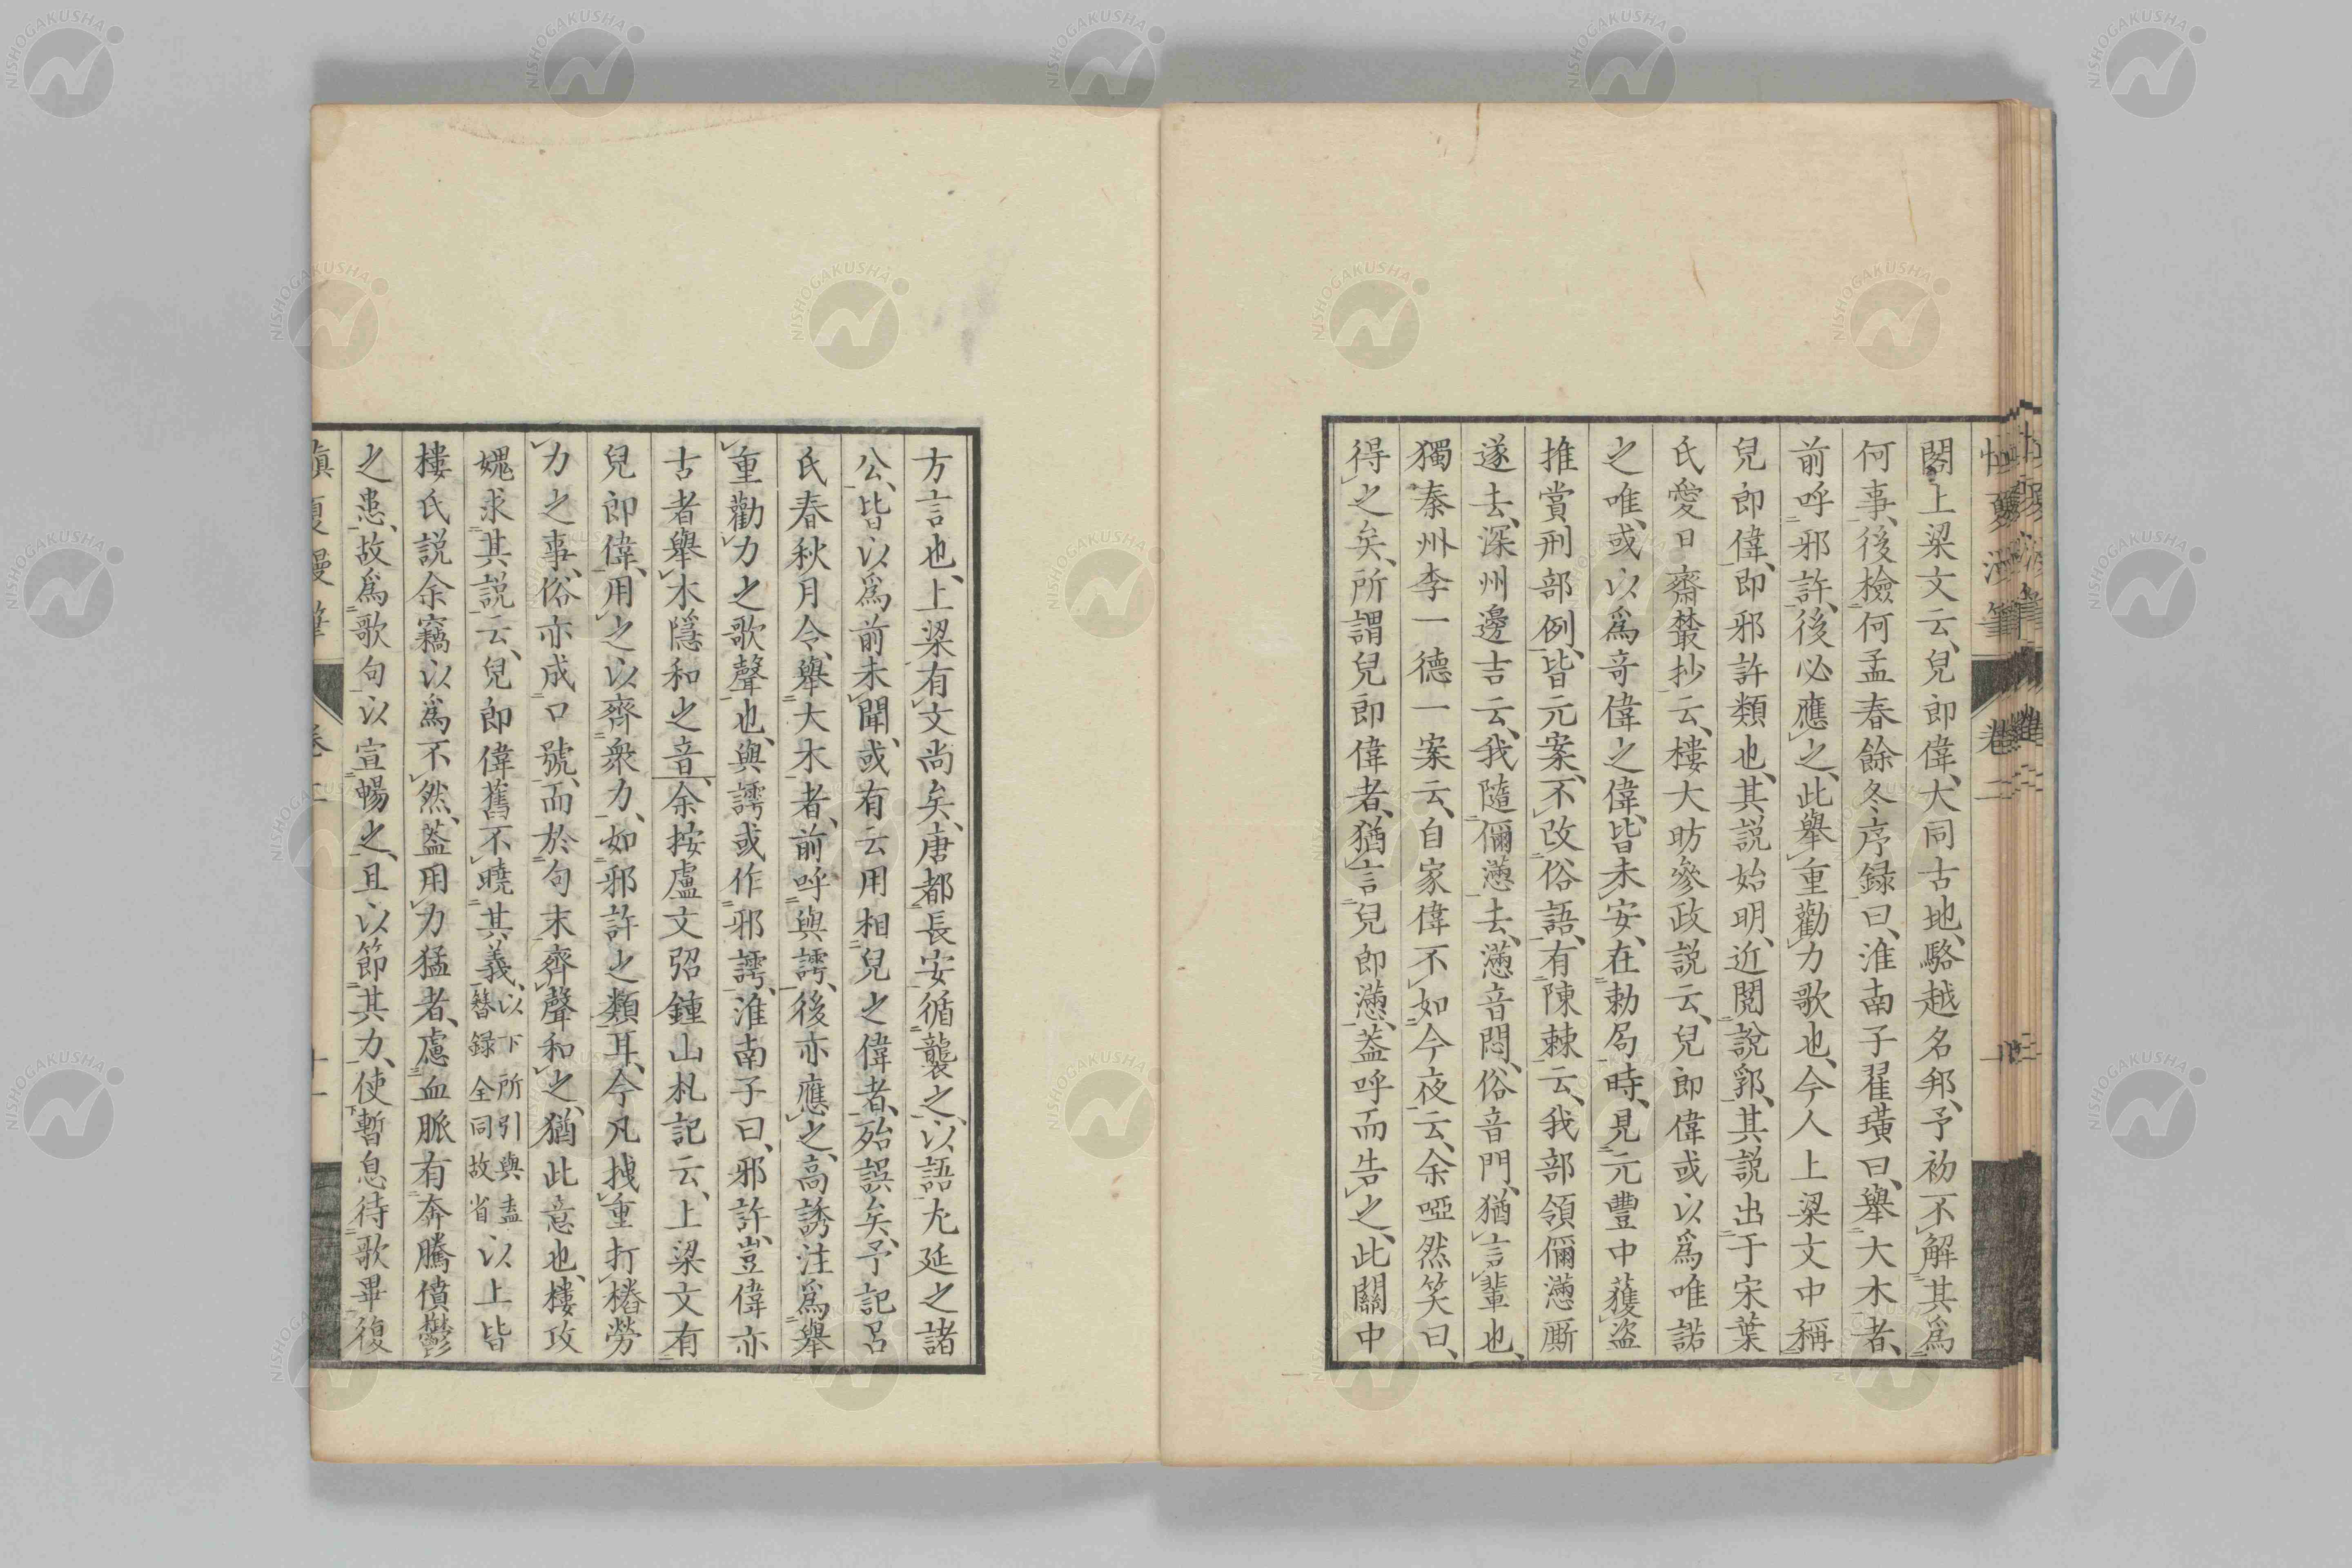 閣上梁文云、兒郎偉、大同古地、駱越名邦、予初不解其爲
何事、後檢何孟春餘冬序録曰、淮南子翟璜曰、舉大木者、
前呼邪許、後必應之、此舉重勸力歌也、今人上梁文中稱
兒郎偉、即邪許類也、其説始明、近閲說郛、其説出于宋葉
氏愛日齋叢抄云、樓大昉參政説云、兒郎偉或以爲唯諾
之唯、或以爲奇偉之偉、皆未安、在勅局時、見元豐中獲盗
推賞刑部例、皆元案、不改俗語、有陳棘云、我部領儞懣厮
遂去、深州邊吉云、我隨儞懣去、懣音悶、俗音門、猶言輩也、
獨秦州李一德一案云、自家偉不如今夜云、余啞然笑曰、
得之矣、所謂兒郎偉者、猶言兒郎懣、蓋呼而告之、此關中
方言也、上梁有文尚矣、唐都長安、循襲之、以語尤延之諸
公、皆以爲前未聞、或有云用相兒之偉者、殆誤矣、予記呂
氏春秋月令、舉大木者、前呼與謣、後亦應之、高誘注爲舉
重勸力之歌聲也、與謣或作邪謣、淮南子曰、邪許、豈偉亦
古者舉木隱和之音、余按盧文弨鍾山札記云、上梁文有
兒郎偉、用之以齊衆力、如邪許之類耳、今凡拽重打樁勞
力之事、俗亦成口號、而於句末齊聲和之、猶此意也、樓攻
媿求其説云、兒郎偉舊不曉其義、以下所引與盍簪録全同故省以上皆
樓氏説余竊以爲不然、蓋用力猛者、慮血脈有奔騰僨鬱
之患、故爲歌句以宣暢之、且以節其力、使暫息待歌畢復
慎夏漫筆 卷二 十一